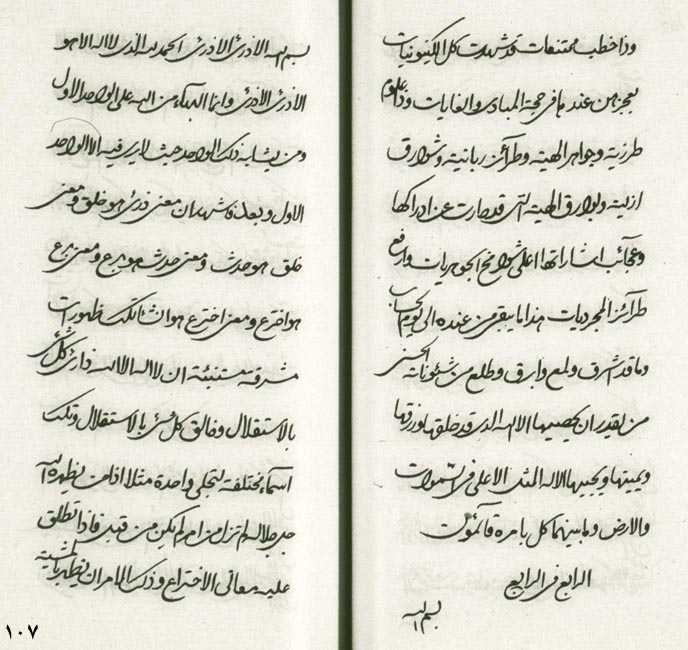 وذا خطب ممتنعات قد شهدت كل الكينونيات
بعجزهن عند ما فى حجة المبادى والغايات وذا علوم
طرزية وجواهر الهية وطرائز ربانية وشوارق
ازلية وبوارق الهية التى قد حارت عن ادراكها
وعجائب اشاراتها اعلى شوامخ الجوهريات وارفع
طرائز المجرديات هذا ما يبقى من عنده الى يوم
وما قد اشرق ولمع وابرق وطلع من شئوناته الحسنى
من يقدر ان يحصيها الا الله الذى قد خلقها ورزقها
ويميتها ويحييها لا اله المثل الاعلى فى السموات
والارض وما بينهما كل بامره قائمون
الرابع فى الرابع
بسم الله
بسم الله الاذرء الاذرء الحمد لله الذى لا اله الا هو
الاذرء الاذرء وانما البهاء من الله على الواحد الاول
ومن يشابه ذلك الواحد حيث لا يرى فيه الا الواحد
الاول وبعد فاشهد ان معنى ذرء هو خلق ومعنى
خلق هو حدث ومعنى حدث هو بدع ومعنى بدع
هو اخترع ومعنى اخترع هو انشأ تلك ظهورات
مشرقة مستنبئة ان لا اله الا الله ذارئ كل شئ
بالاستقلال وخالق كل شئ بالاستقلال وتلك
اسماء مختلفة لتجلى واحدة مثلا اذا من يظهره الله
جل جلاله لم تر امر لم يكن من قبل فاذا تطلق
عليه معانى الاختراع وذلك الامر ان يظهر بالمشية
١٠٧